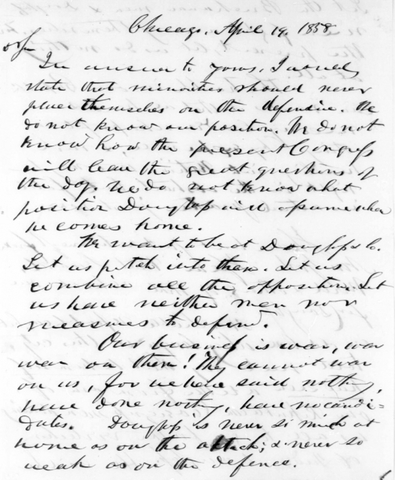 Chicago, April 19, 1858
In answer to yours, I would
state that minorities should never
place themselves on the defensive. We
do not know our position. We do not
know how the present Congress
will leave the great questions of
the day. We do not know what
position Douglass will assume when
he comes home.
We want to be at Douglass & Co.
Let us pitch into them. Let us
combine all the opposition. Let
us have neither men nor
measures to defend.
Our business is war, war
war on them! They cannot war
on us, for we have said nothing,
have done nothing, have no candi-
dates. Douglass is never so much at
home as on the attack; & never so
weak as on the defence.